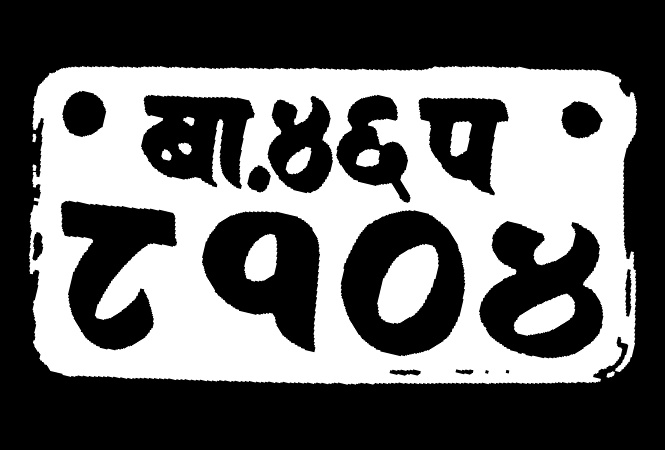 बा.४६ प
८१०४